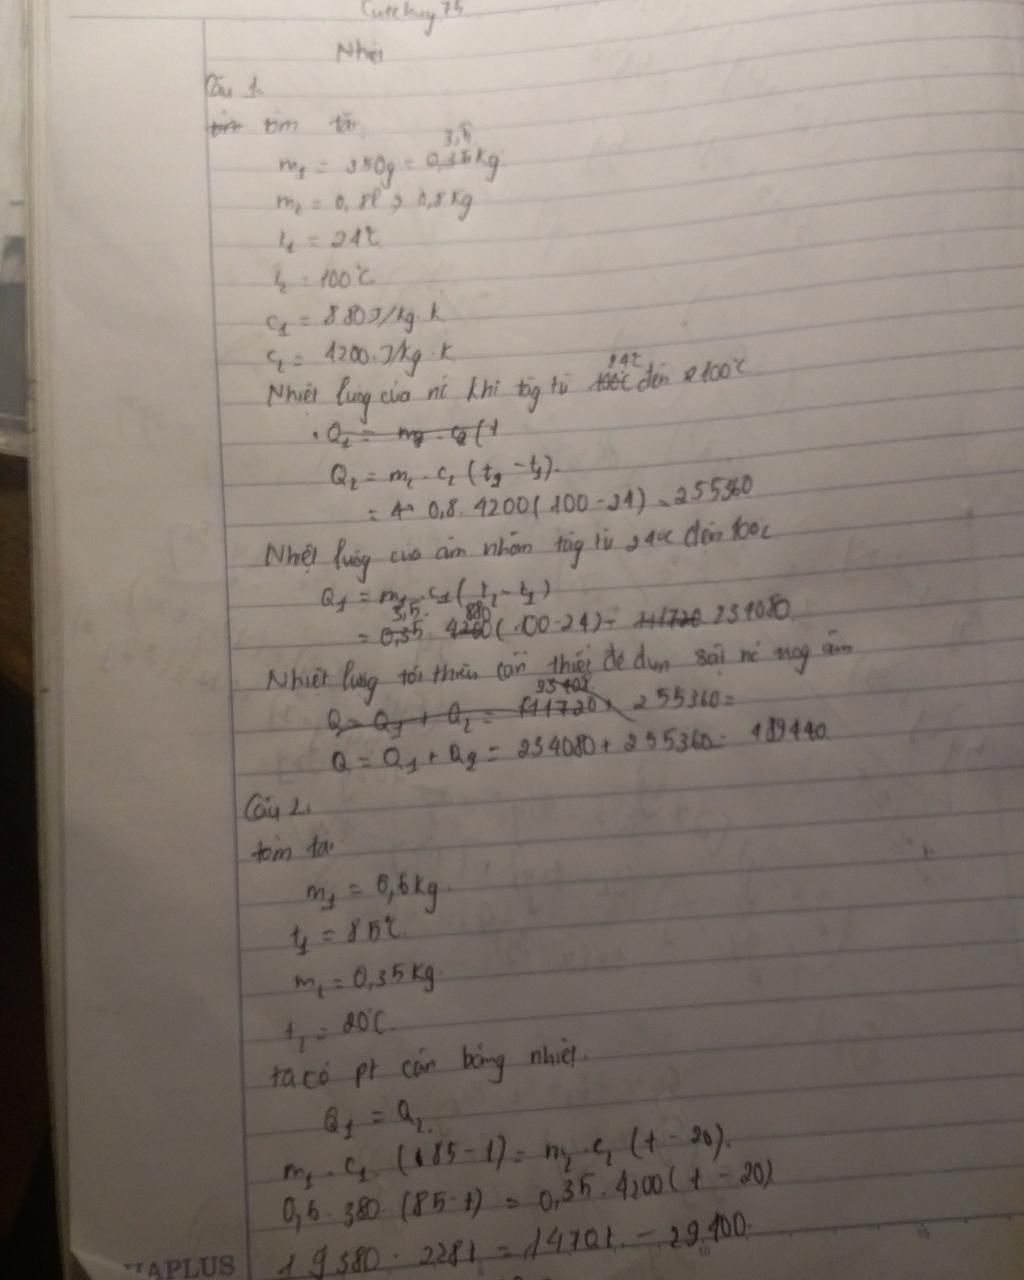 Nhiệt
Câu 1.
tóm tắt.
3,5
m₁ = 350g = 0,35kg.
m₂ = 0,8l = 0,8kg
t₁ = 24°C
t₂ = 100°C
c₁ = 880J/kg.k
c₂ = 4200.J/kg.k
24°C
Nhiệt lượg của nc khi tăg từ 100°C đến 100°C
Q₂ = m₂ . c₂ (t
Q₂ = m₂ . c₂ (t₂ - t₁).
= 0,8. 4200(100-24) = 255360
Nhiệt lượg của ấm nhôm tăg từ 24°C đến 100°C
Q₁ = m₁ . c₁ (t₂ - t₁)
3,5. 880
= 0,35. 4200(100-24) = 111720 234080
Nhiệt lượg tối thiểu cần thiết để đun sôi nc trog ấm
23408.
Q = Q₁ + Q₂ = 111720 + 255360=
Q = Q₁ + Q₂ = 234080 + 255360= 489440.
Câu 2.
tóm tắt
m₁ = 0,6kg.
t₁ = 85°C.
m₂ = 0,35kg.
t₂ = 20°C.
ta có pt cân bằng nhiệt.
Q₁ = Q₂.
m₁ . c₁ . (85-t) = m₂ . c₂ (t - 20).
0,6. 380. (85-t) = 0,35. 4200(t - 20)
19380 - 228t = 1470t - 29400.
APLUS